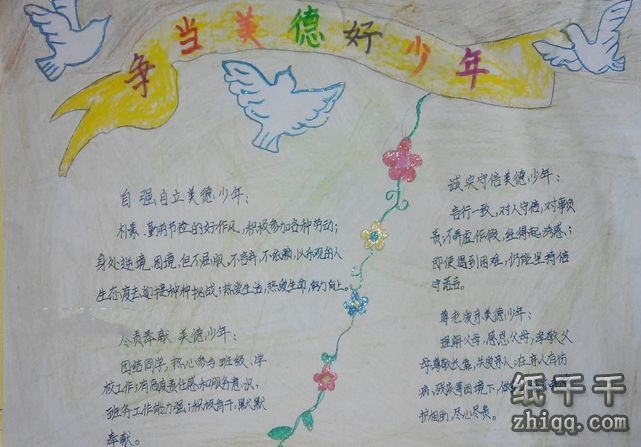 争当美德好少年
自强自立美德少年：
朴素、勤俭节俭的好作风，积极参加各种劳动；
身处逆境、困境，但不屈服、不言弃、不依赖，以乐观的人
生态度去迎接种种挑战；热爱生活，热爱生命，努力向上。
尽责奉献美德少年：
团结同学，热心参与班级、学
校工作；有高度责任感和服务意识，
班务工作能力强；积极肯干，默默
奉献。
诚实守信美德少年：
言行一致，对人守信，对事负
责；不弄虚作假，经得起诱惑；
即使遇到困难，仍能坚持信
守诺言。
尊老爱亲美德少年：
理解父母，感恩父母，孝敬父
母尊敬长辈，关爱亲人；在亲人有伤
病、残疾等困境下，
护相助，尽心尽责。
纸千千
zhiqq.com